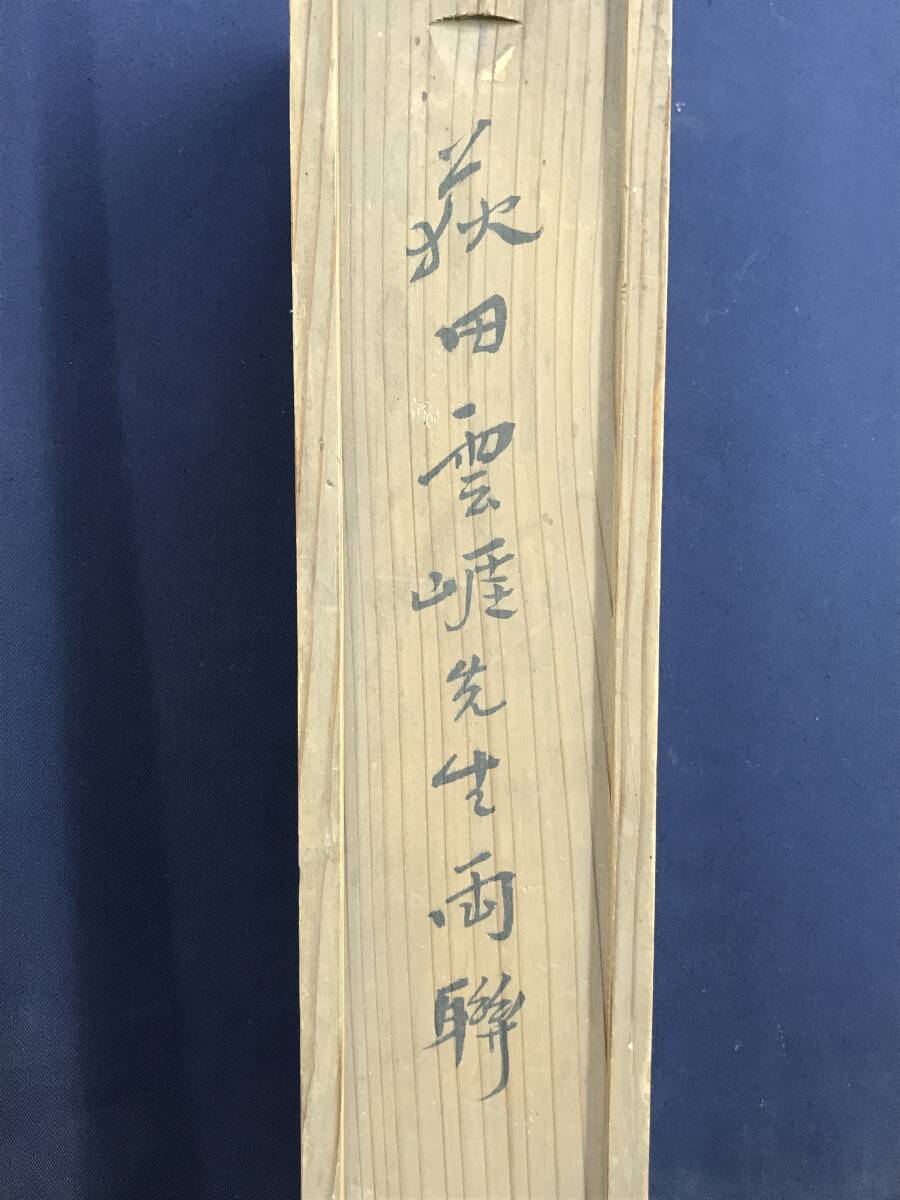 荻田雲崕先生両聯